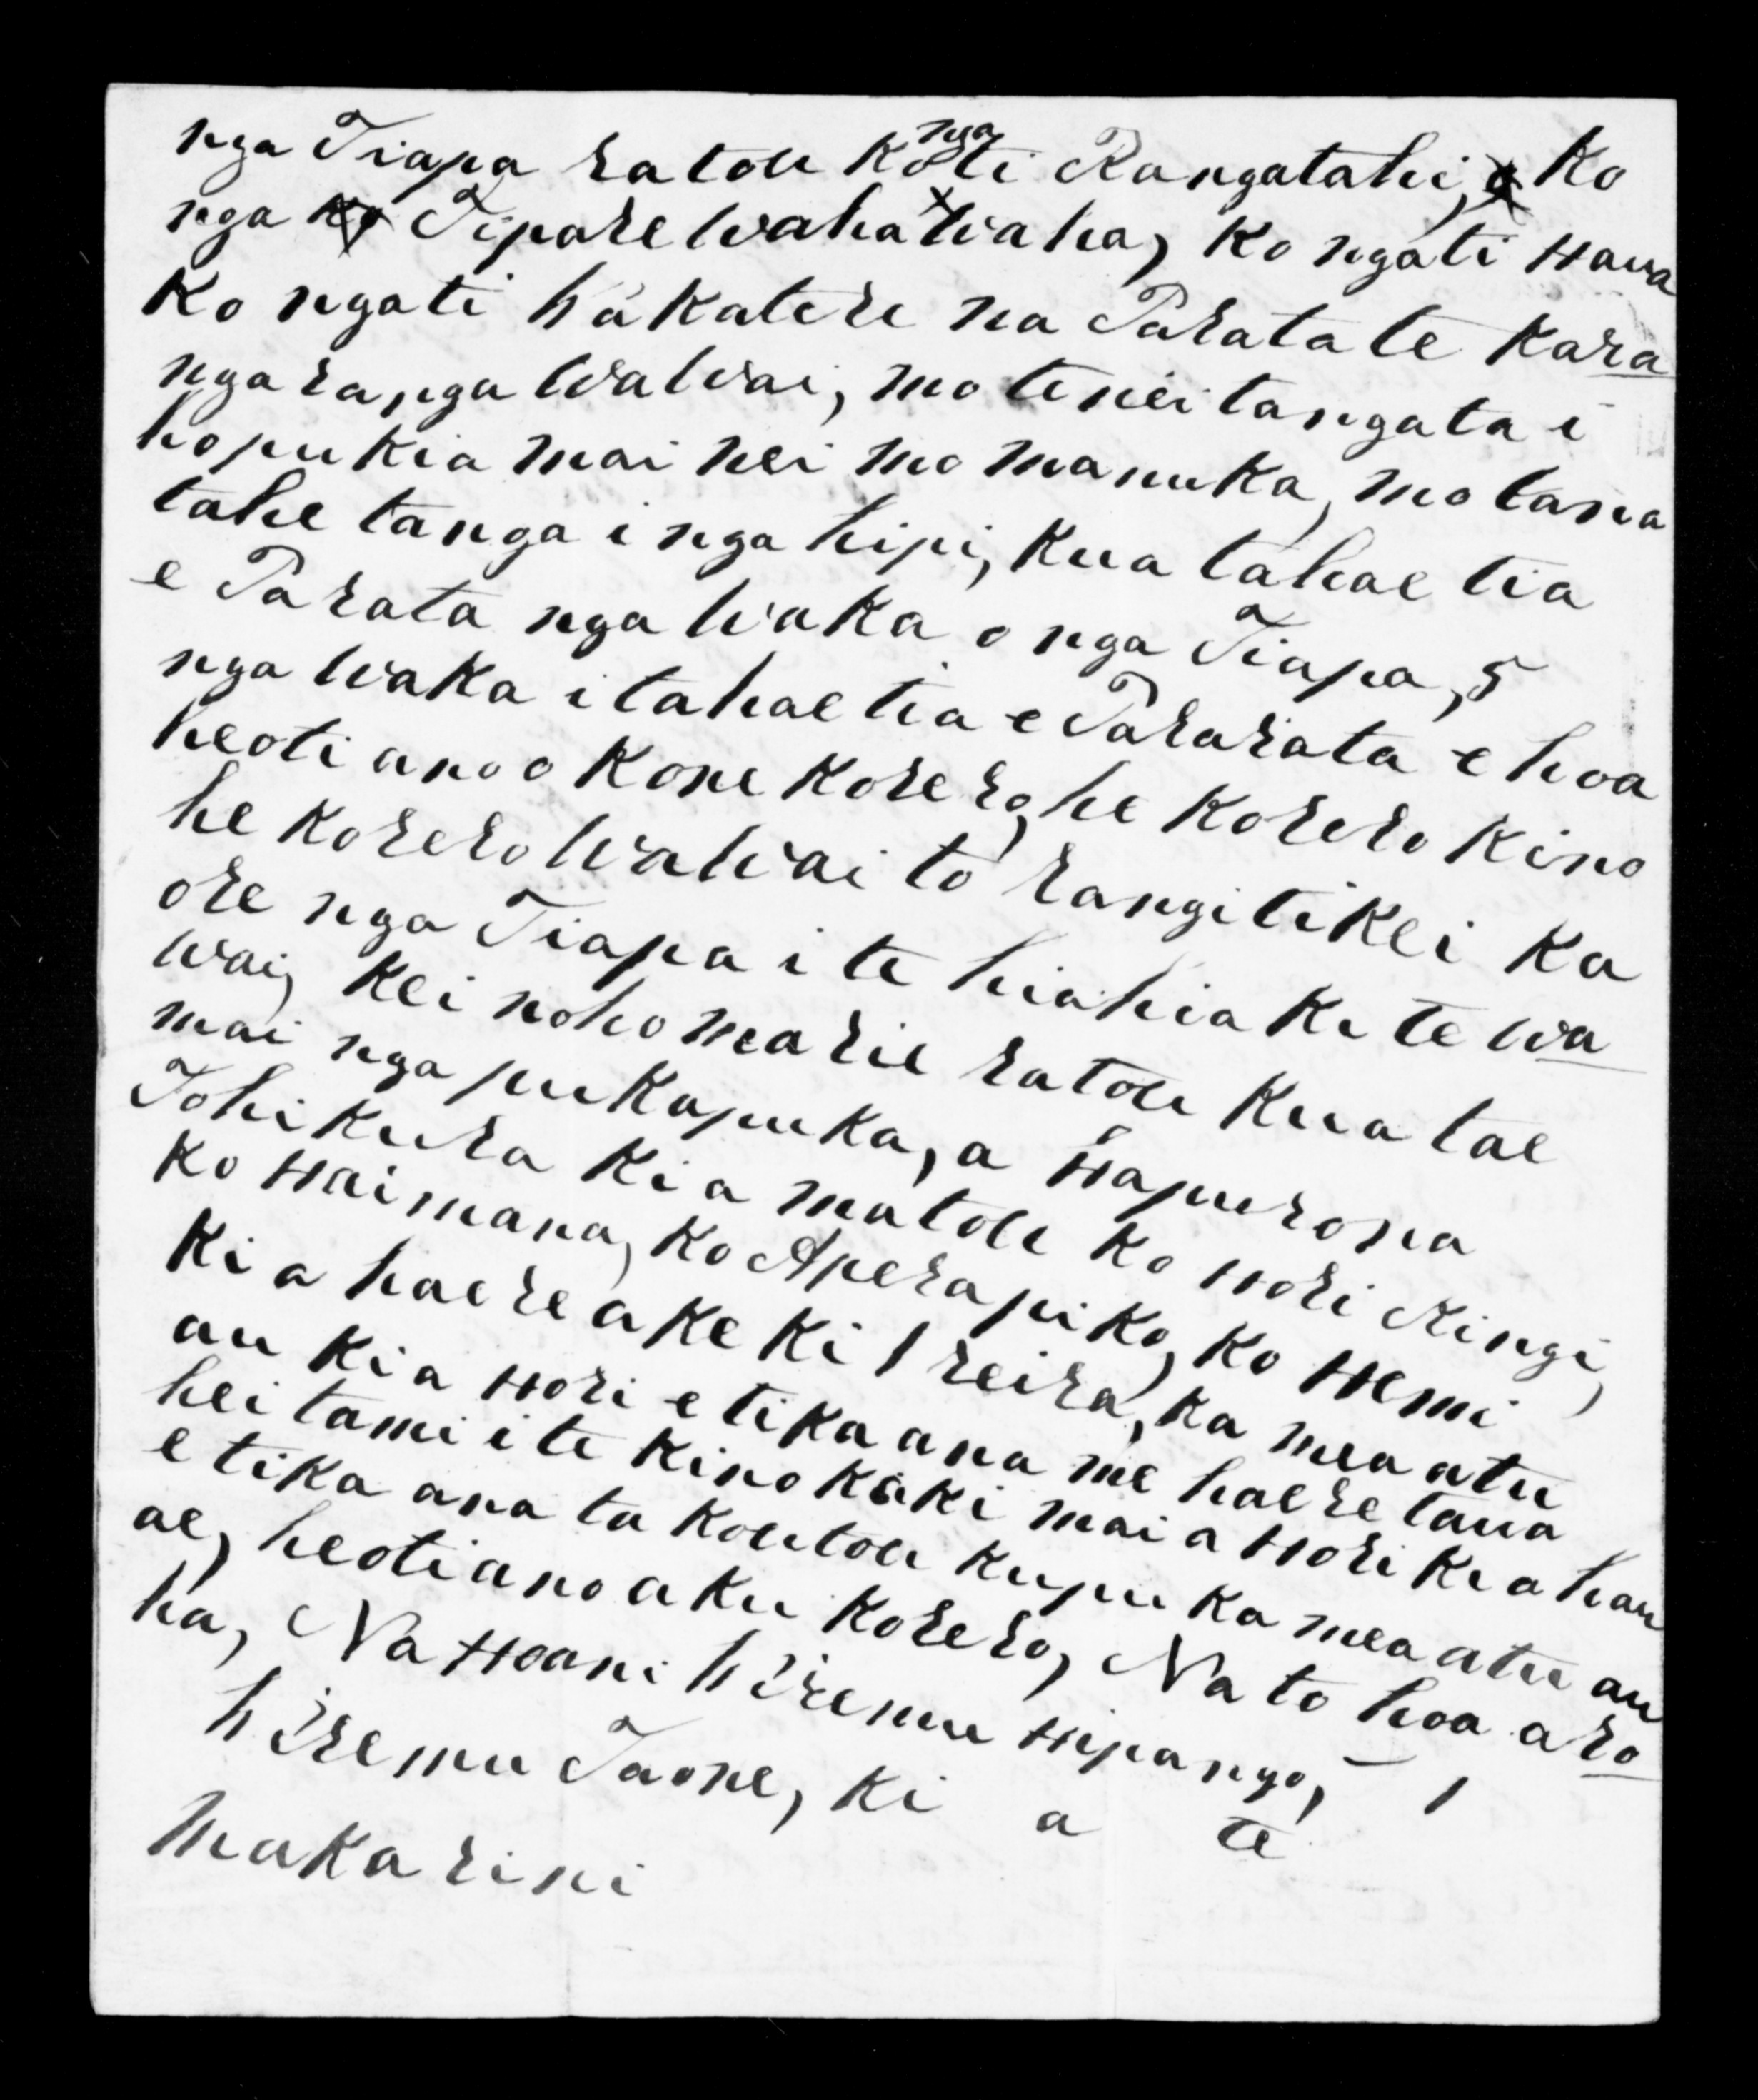 nga Tiapa ratou ko ngati Rangatahi, ko
nga Tipare Waha Waha, ko ngati Haua
ko ngati Wakatere na Parata te kara
ngaranga Wawai, mo tenei tangata i
hopukia mai nei mo manuka, mo tana
tahe tanga i nga hipi, kua tahae tia
e Parata nga Waka o nga Tiapa, 5
nga Waka i tahae tia e Pararata e hoa
heoti ano o kone korero, he korero kino
he korero Wawai to rangitikei ka
ore nga Tiapa i te hiahia ki te wa
wai, kei noho marie ratou kua tae
mai nga pukapuka, a Hapurona
Tohikura kia matou ko Hori Kingi,
ko Haimana, ko Aperapiko, ko Hemi
kia haere ake ki reira, ka mea atu
au kia Hori e tika ana me haere taua
hei tami i te kino kaki mai a Hori kia hau
e tika ana ta koutou kupu ka mea atu au
ae, heoti ano aku korero, Na to hoa aro
ha, Na Hoani Wiremu Hipango,
Wiremu Taone, ki a te
Makarini